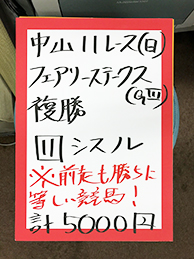 中山11レース(日)
フェアリーステークス
(GⅢ)
複勝
11 シスル
※前走も勝ちに
等しい競馬!
計5000円